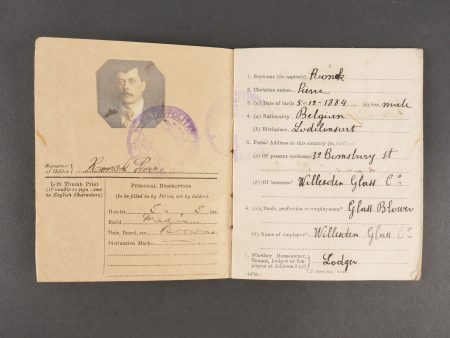 Signature of Holder} Ronck Pierre
Left Thumb Print
(if unable to sign name in English Characters).
PERSONAL DESCRIPTION
(to be filled in by Police, not by Alien)
Height 5 ft. 8 in.
Build Medium
Hair, Beard, etc.
Distinctive Marks
1. Surname (in capitals) Ronck
2. Christian names Pierre
3. (a) Date of birth 5-12-1884 (b) Sex male
4. (a) Nationality Belgian
(b) Birthplace
5. Postal Address in this country (in full):
(a) Of present residence St
(b) Of business Willesden Glass Co
6. (a) Trade, profession or employment Glass Blower
(b) Name of employer Willesden Glass Co
7. Whether Householder, Tenant, Lodger or Employee at Address 5 (a) } Lodger